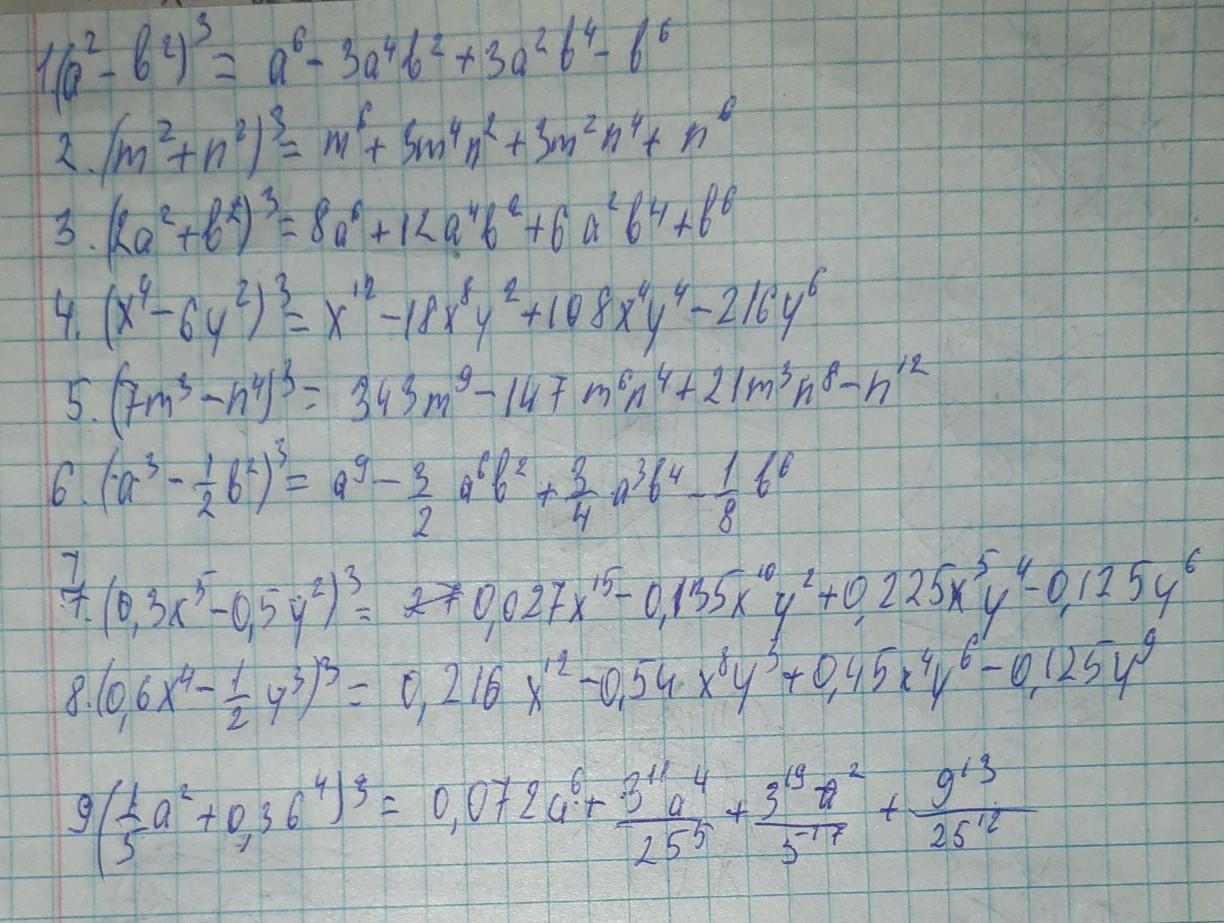 1.(a² - b²)³ = a⁶ - 3a⁴b² + 3a²b⁴ - b⁶
2. (m² + n²)³ = m⁶ + 3m⁴n² + 3m²n⁴ + n⁶
3. (2a² + b²)³ = 8a⁶ + 12a⁴b² + 6a²b⁴ + b⁶
4. (x⁴ - 6y²)³ = x¹² - 18x⁸y² + 108x⁴y⁴ - 216y⁶
5. (7m³ - n⁴)³ = 343m⁹ - 147m⁶n⁴ + 21m³n⁸ - n¹²
6. (a³ - 1/2 b²)³ = a⁹ - 3/2 a⁶b² + 3/4 a³b⁴ - 1/8 b⁶
7. (0,3x⁵ - 0,5y²)³ = 0,027x¹⁵ - 0,135x¹⁰y² + 0,225x⁵y⁴ - 0,125y⁶
8. (0,6x⁴ - 1/2 y³)³ = 0,216x¹² - 0,54x⁸y³ + 0,45x⁴y⁶ - 0,125y⁹
9 (2/5 a² + 0,36⁴)³ = 0,072a⁶ + 3¹¹a⁴/25⁵ + 3¹⁹a²/5¹⁷ + 9¹³/25¹²